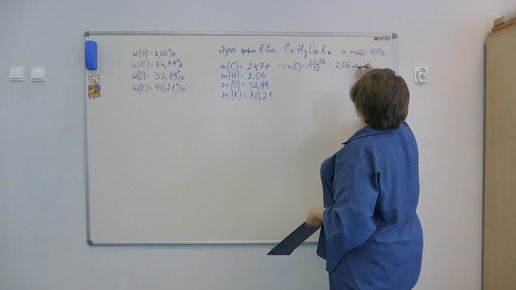 w(H) = 2,06%
w(C) = 24,74%
w(O) = 32,99%
w(K) = 40,21%
Пусть форм в-ва CxHyOzKn и m = 100г
m(C) = 24,74 => n(C) = 24,74/12 = 2,06
m(H) = 2,06
m(O) = 32,99
m(K) = 40,21